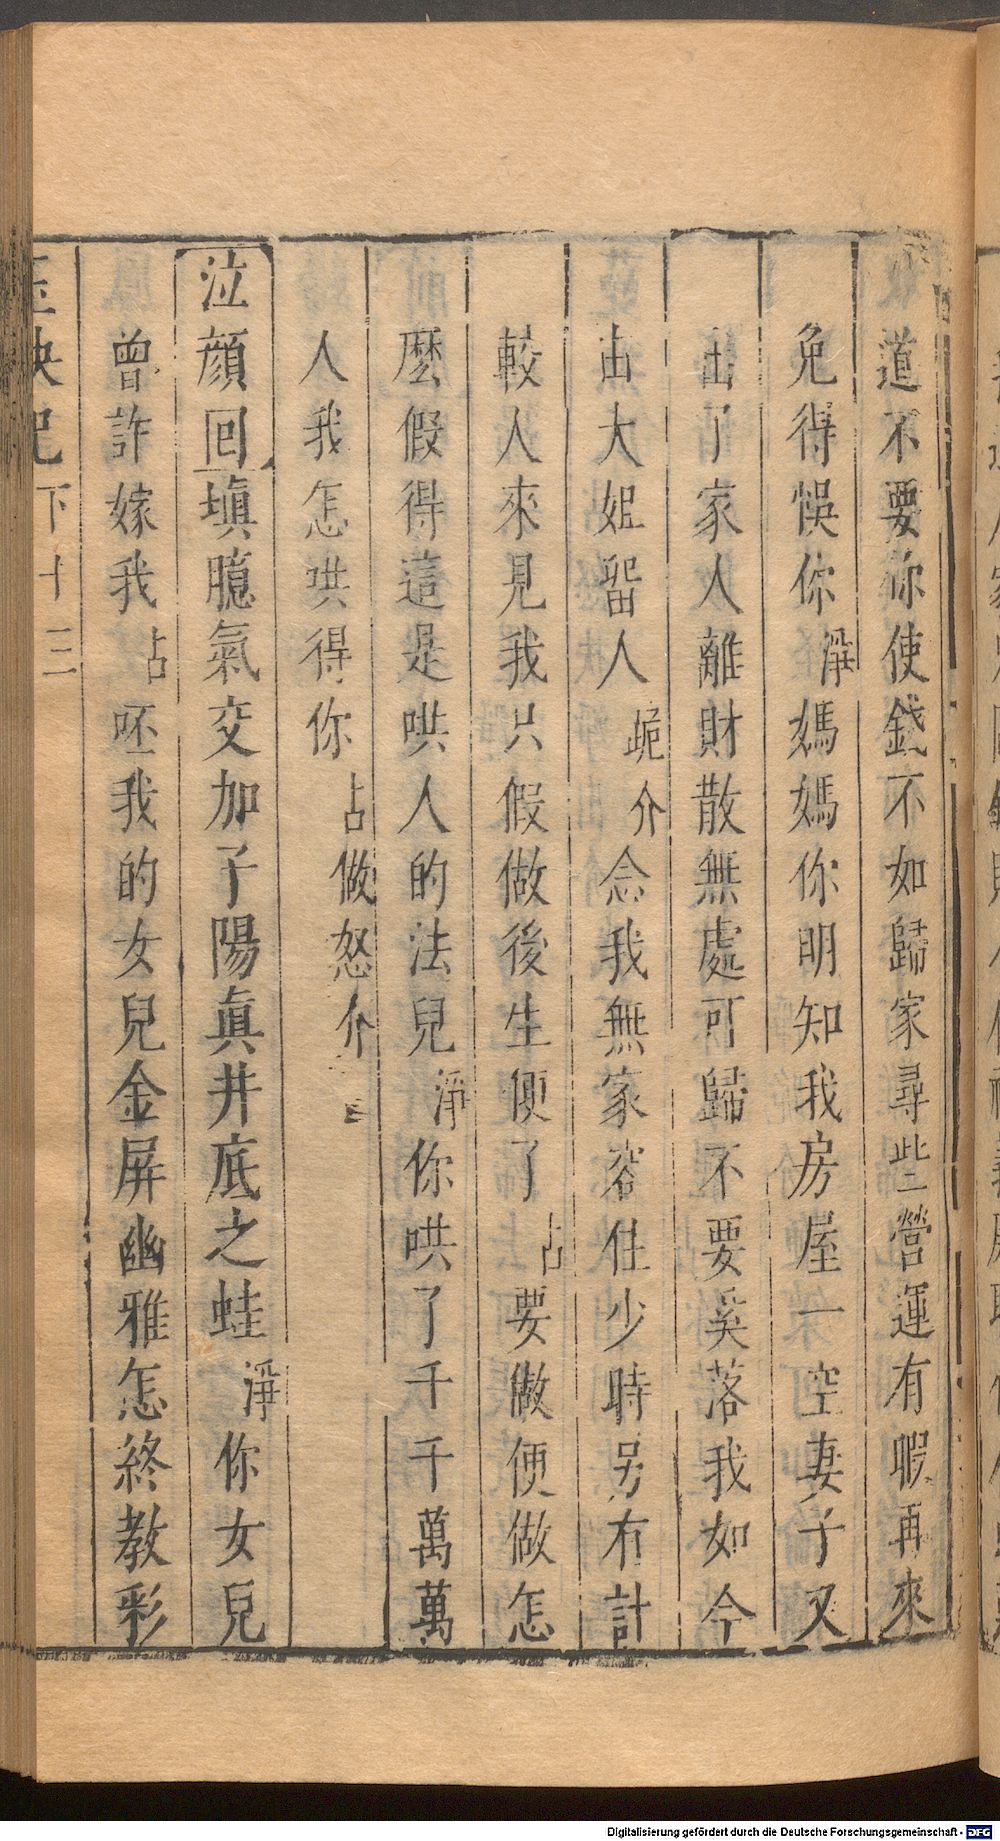 道不要你使錢不如歸家尋些營運有暇再來
免得悞你淨媽媽你明知我房屋一空妻子又
出了家人離財散無處可歸不要奚落我如今
由大姐留人跪介念我無家容住少時另有計
較人來見我只假做後生便了占要做便做怎
麽假得這是哄人的法兒淨你哄了千千萬萬
人我怎哄得你占做怒介
泣顔回塡臆氣交加子陽眞井底之蛙淨你女兒
曾許嫁我占呸我的女兒金屏幽雅怎終教彩
玉玦記 下 十三
Digitalisierung gefördert durch die Deutsche Forschungsgemeinschaft - DFG